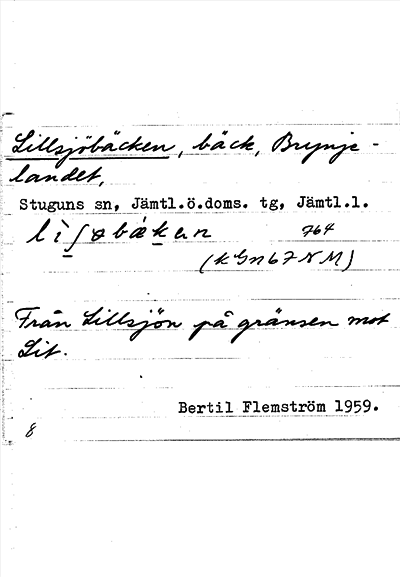 Lillsjöbäcken, bäck, Brynje-
landet,
Stuguns sn, Jämtl.ö.doms. tg, Jämtl.l.
764
Från Lillsjön på gränsen mot
Lit.
Bertil Flemström 1959.
8